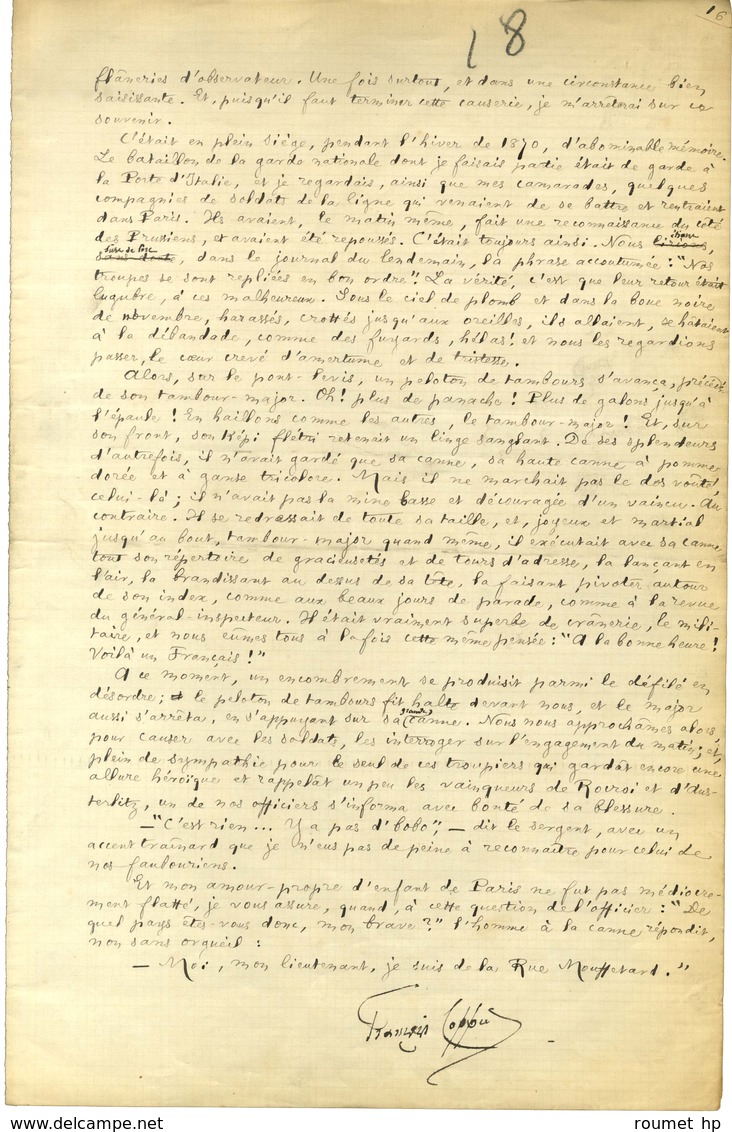 18
16
flâneries d'observateur. Une fois surtout, et dans une circonstance bien
saisissante. Et, puisqu'il faut terminer cette causerie, je m'arrêterai sur ce
souvenir.
C'était en plein siège, pendant l'hiver de 1870, d'abominable mémoire.
Le bataillon de la garde nationale dont je faisais partie était de garde à
la Porte d'Italie, et je regardais, ainsi que mes camarades, quelques
compagnies de soldats de la ligne qui venaient de se battre et rentraient
dans Paris. Ils avaient, le matin même, fait une reconnaissance du côté
des Prussiens, et avaient été repoussés. C'était toujours ainsi. Nous lirions,
sans doute, dans le journal du lendemain, la phrase accoutumée : "Nos
troupes se sont repliées en bon ordre". La vérité, c'est que leur retour était
lugubre, à ces malheureux. Sous le ciel de plomb et dans la boue noire
de novembre, harassés, crottés jusqu'aux oreilles, ils allaient, se hâtaient
à la débandade, comme des fuyards, hélas ! et nous les regardions
passer, le cœur crevé d'amertume et de tristesse.
Alors, sur le pont-levis, un peloton de tambours s'avança, précédé
de son tambour-major. Oh ! plus de panache ! Plus de galons jusqu'à
l'épaule ! En haillons comme les autres, le tambour-major ! Et, sur
son front, son képi flétri retenait un linge sanglant. De ses splendeurs
d'autrefois, il n'avait gardé que sa canne, sa haute canne à pomme
dorée et à ganse tricolore. Mais il ne marchait pas le dos voûté,
celui-là ; il n'avait pas la mine basse et découragée d'un vaincu. Au
contraire. Il se redressait de toute sa taille, et, joyeux et martial
jusqu'au bout, tambour-major quand même, il exécutait avec sa canne
tout son répertoire de gracieusetés et de tours d'adresse, la lançant en
l'air, la brandissant au dessus de sa tête, la faisant pivoter autour
de son index, comme aux beaux jours de parade, comme à la revue
du général-inspecteur. Il était vraiment superbe de crânerie, le mili-
taire, et nous eûmes tous à la fois cette même pensée : "A la bonne heure !
Voilà un Français !"
A ce moment, un encombrement se produisit parmi le défilé en
désordre ; le peloton de tambours fit halte devant nous, et le major
aussi s'arrêta, en s'appuyant sur sa grande canne. Nous nous approchâmes alors
pour causer avec les soldats, les interroger sur l'engagement du matin ; et,
plein de sympathie pour le seul de ces troupiers qui gardât encore une
allure héroïque et rappelât un peu les vainqueurs de Rocroi et d'Aus-
terlitz, un de nos officiers s'informa avec bonté de sa blessure.
— "C'est rien... Y a pas d'bobo", — dit le sergent, avec un
accent traînard que je n'eus pas de peine à reconnaître pour celui de
nos faubouriens.
Et mon amour-propre d'enfant de Paris ne fut pas médiocre-
ment flatté, je vous assure, quand, à cette question de l'officier : "De
quel pays êtes-vous donc, mon brave ?" l'homme à la canne répondit,
non sans orgueil :
— Moi, mon lieutenant, je suis de la Rue Mouffetard."
François Coppée
roumet hp